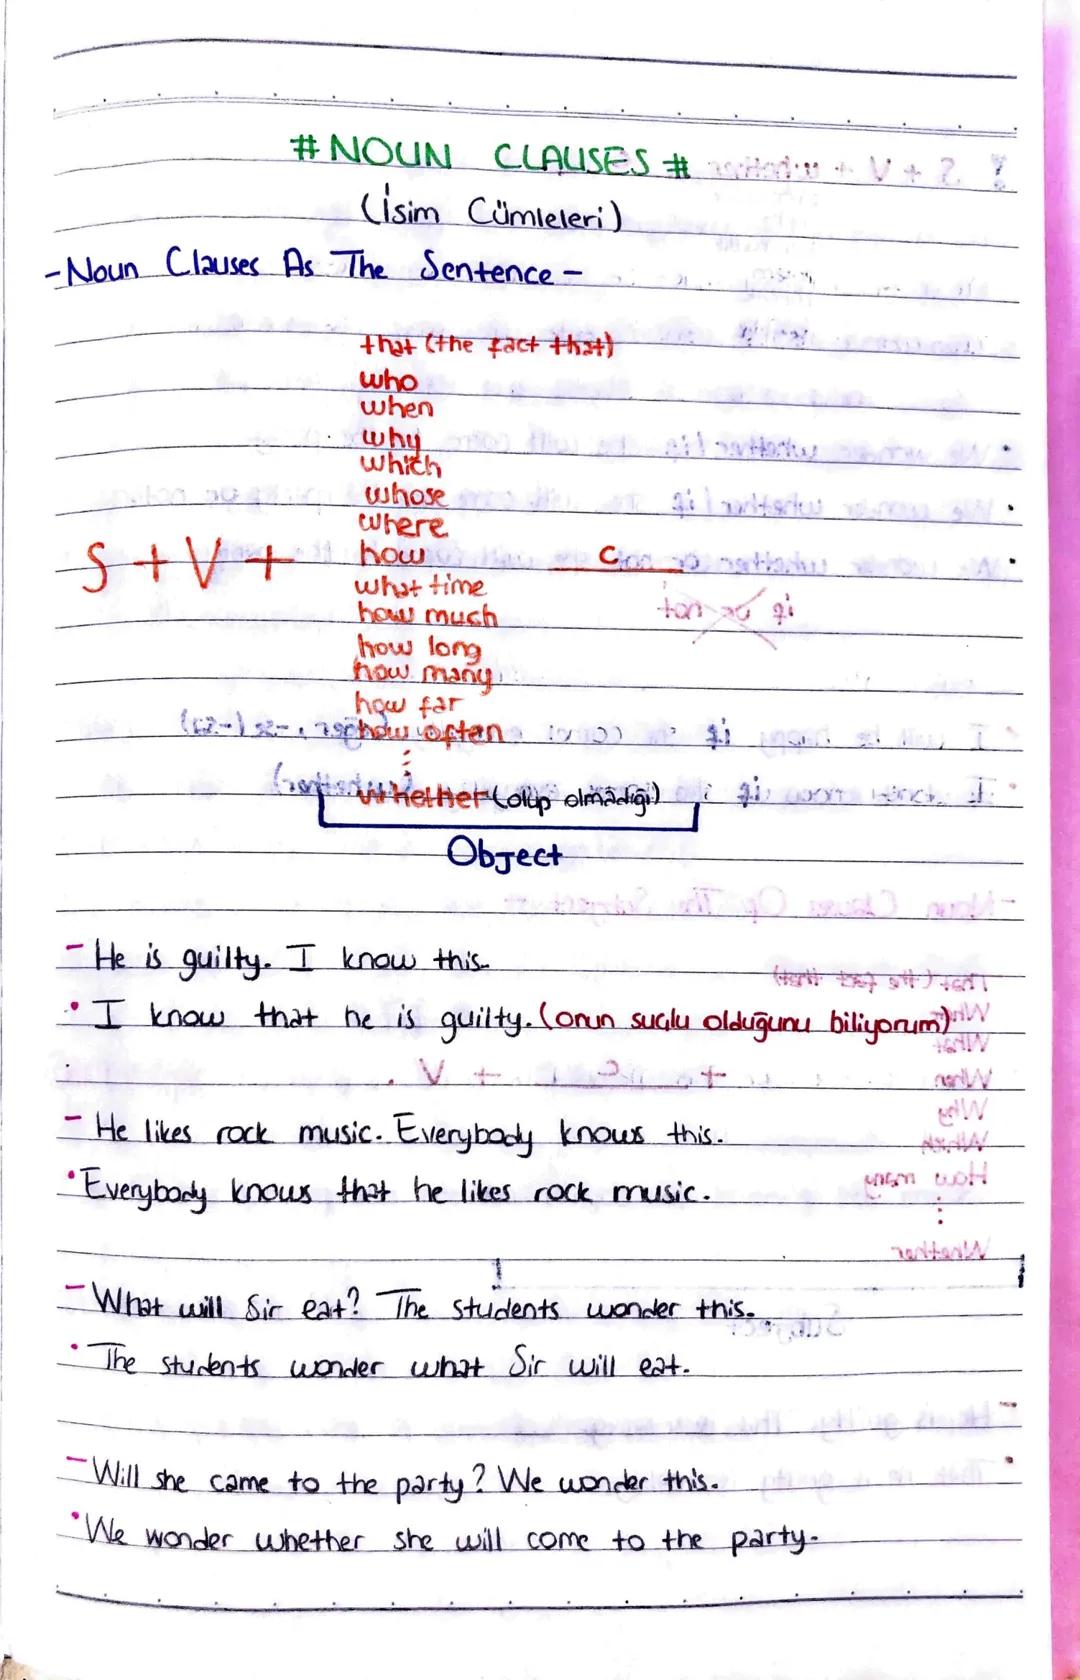 # NOUN CLAUSES #
(İsim Cümleleri)
- Noun Clauses As The Sentence -
that (the fact that)
who
when
why
which
whose
where
S + V + how C
what time
how much
how long
how many
how far
how often
whether (olup olmadığı)
Object
- He is guilty. I know this.
• I know that he is guilty. (onun suçlu olduğunu biliyorum)
- He likes rock music. Everybody knows this.
• Everybody knows that he likes rock music.
- What will Sir eat? The students wonder this.
• The students wonder what Sir will eat.
- Will she came to the party? We wonder this.
• We wonder whether she will come to the party.